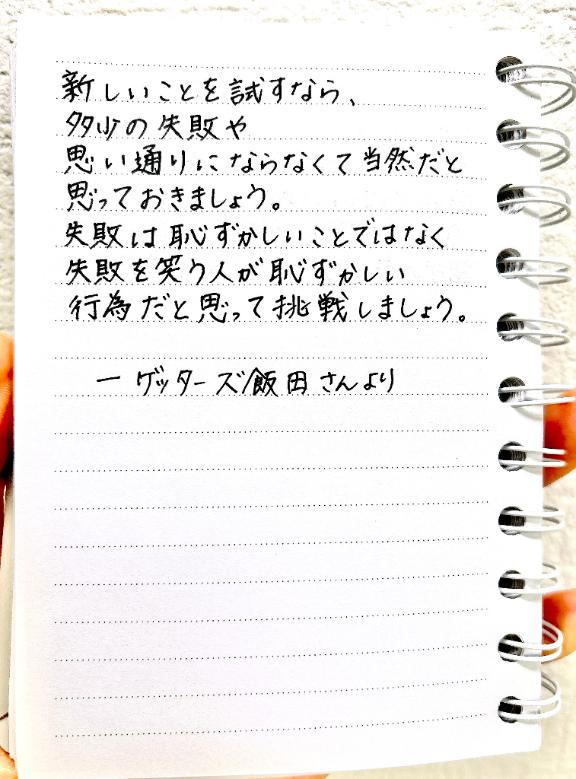 新しいことを試すなら、
多少の失敗や
思い通りにならなくて当然だと
思っておきましょう。
失敗は恥ずかしいことではなく
失敗を笑う人が恥ずかしい
行為だと思って挑戦しましょう。
ー ゲッターズ飯田さんより